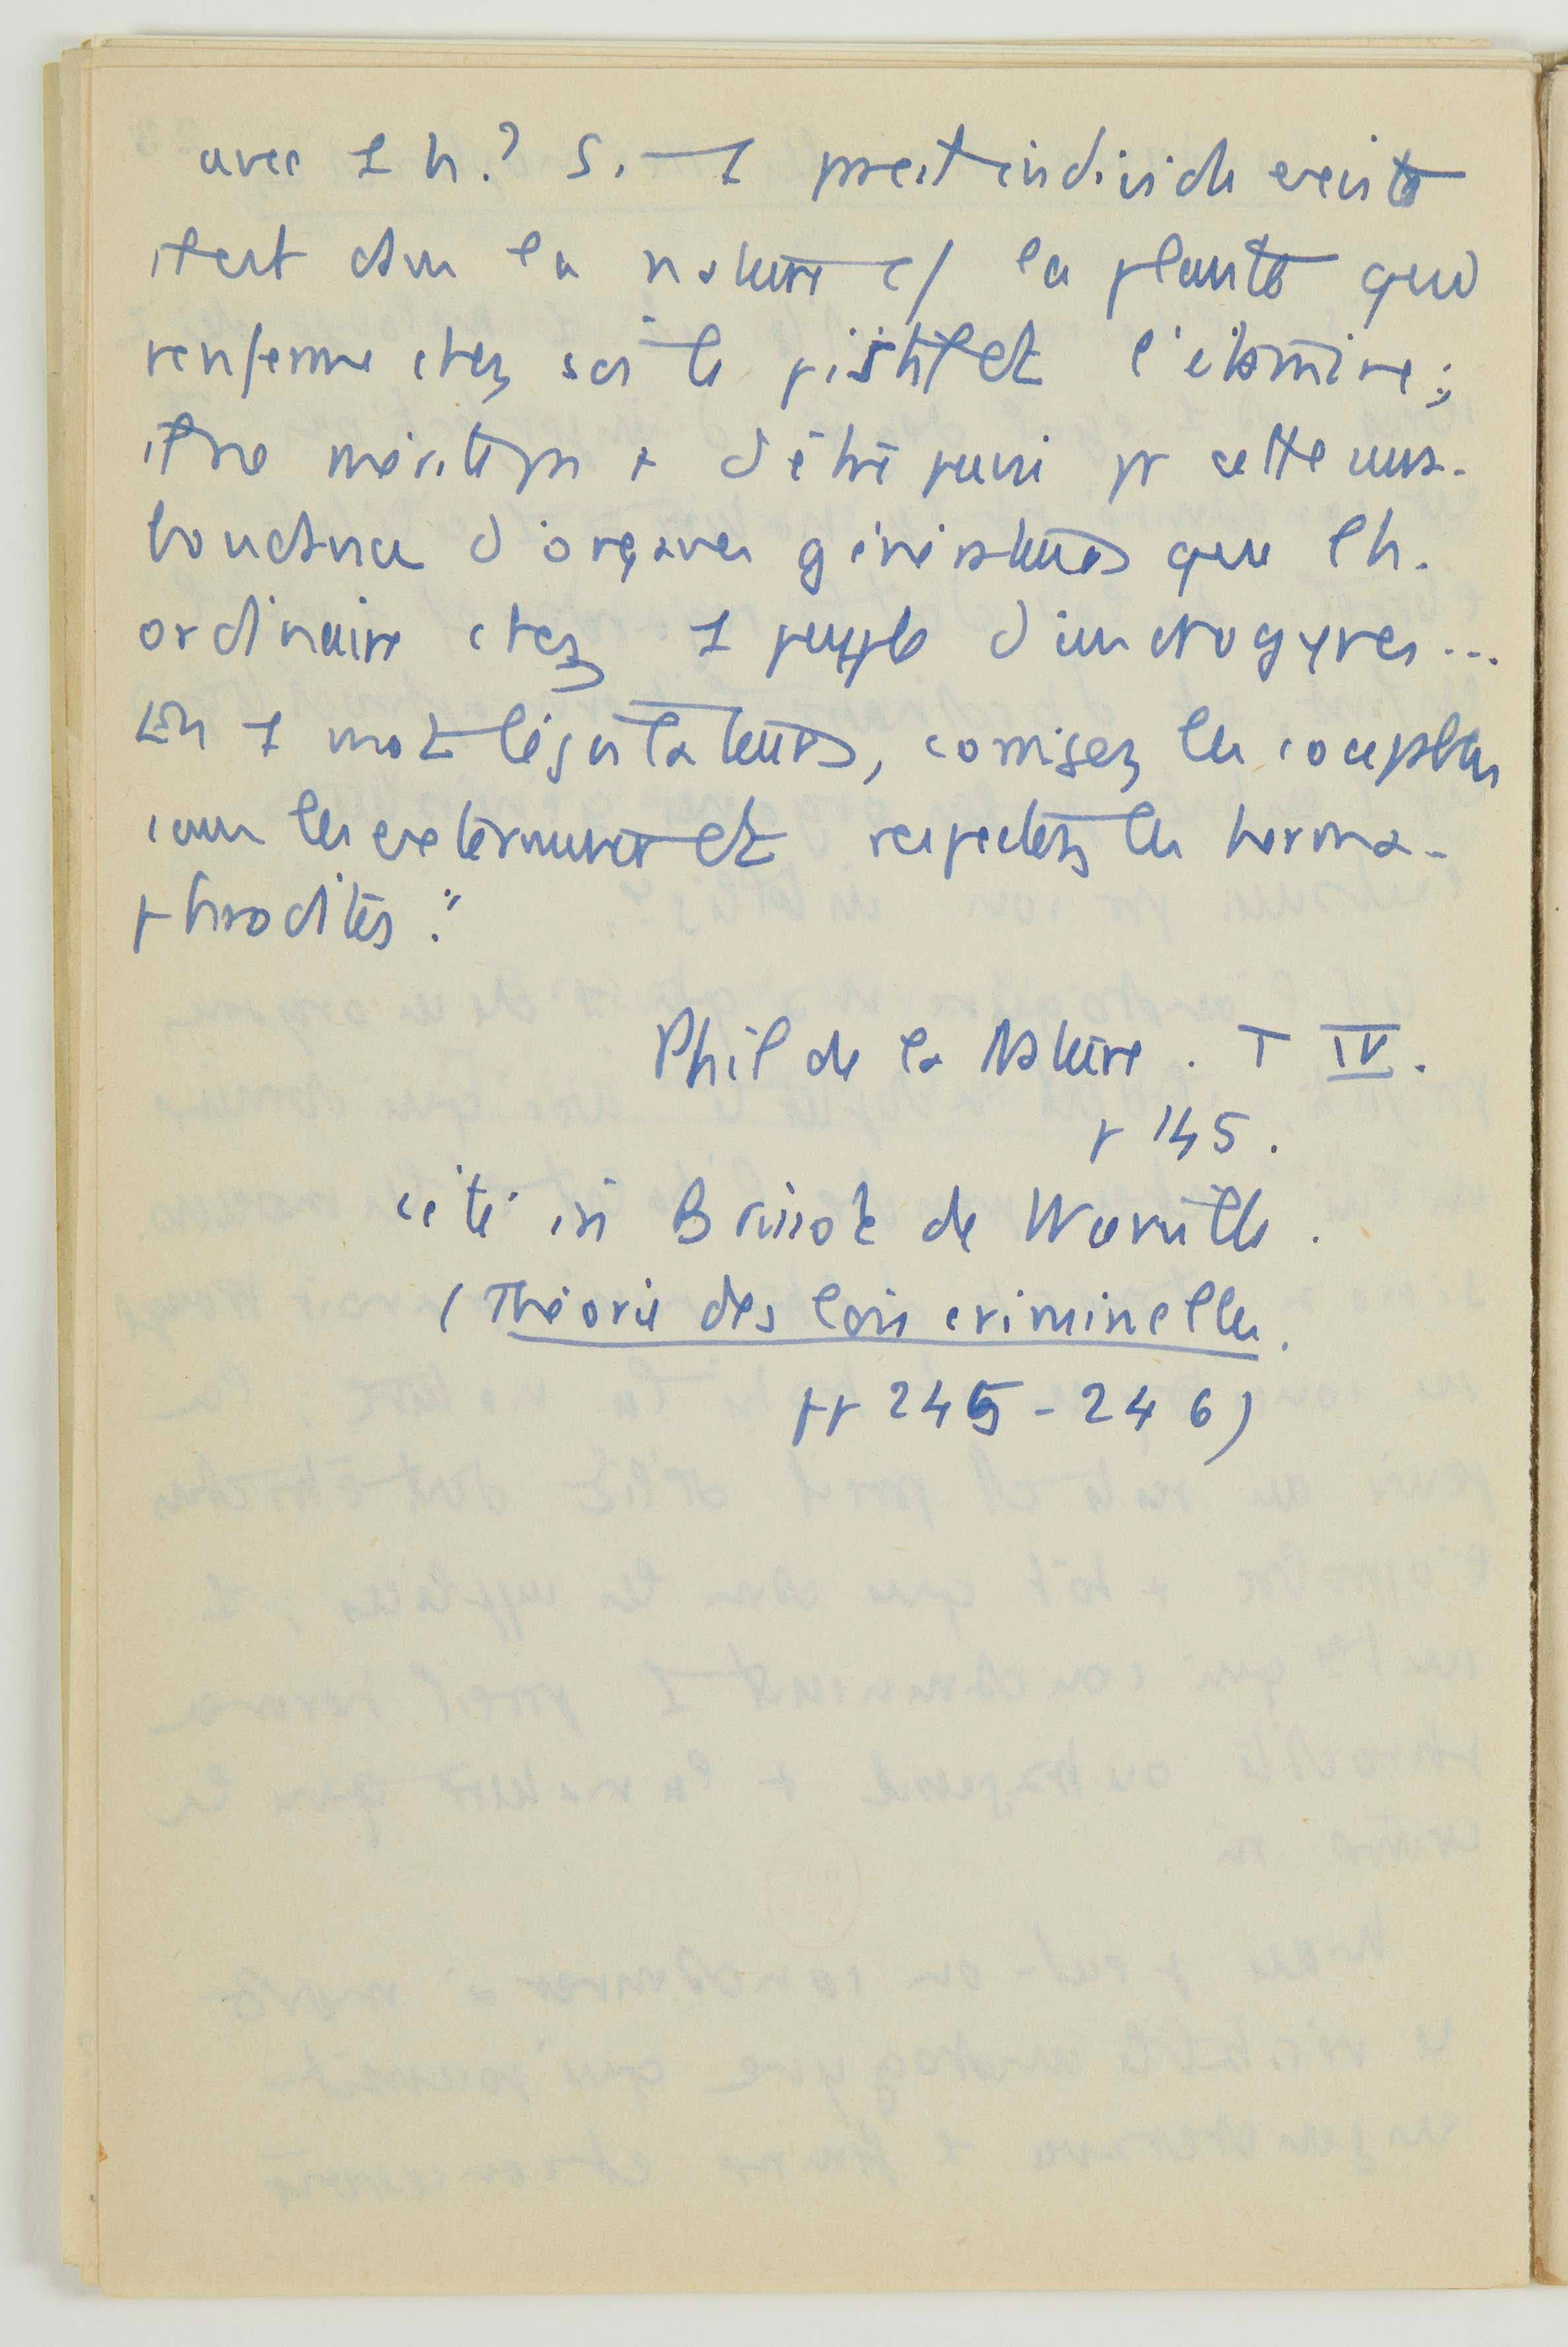 avec 1 h.? Si 1 pareil individu existe
il est dans la nature c/ la plante qui
renferme chez soi le pistil et l'étamine;
il ne mérite pas + d'être puni pr cette sura-
bondance d'organes générateurs que l'h.
ordinaire chez 1 peuple d'androgynes...
En 1 mot législateurs, corrigez les coupables
sans les exterminer et respectez les herma-
phrodites."
Phil de la Nature. T IV.
p 145.
cité in Brissot de Warville.
(Théorie des lois criminelles.
pp 245-246)